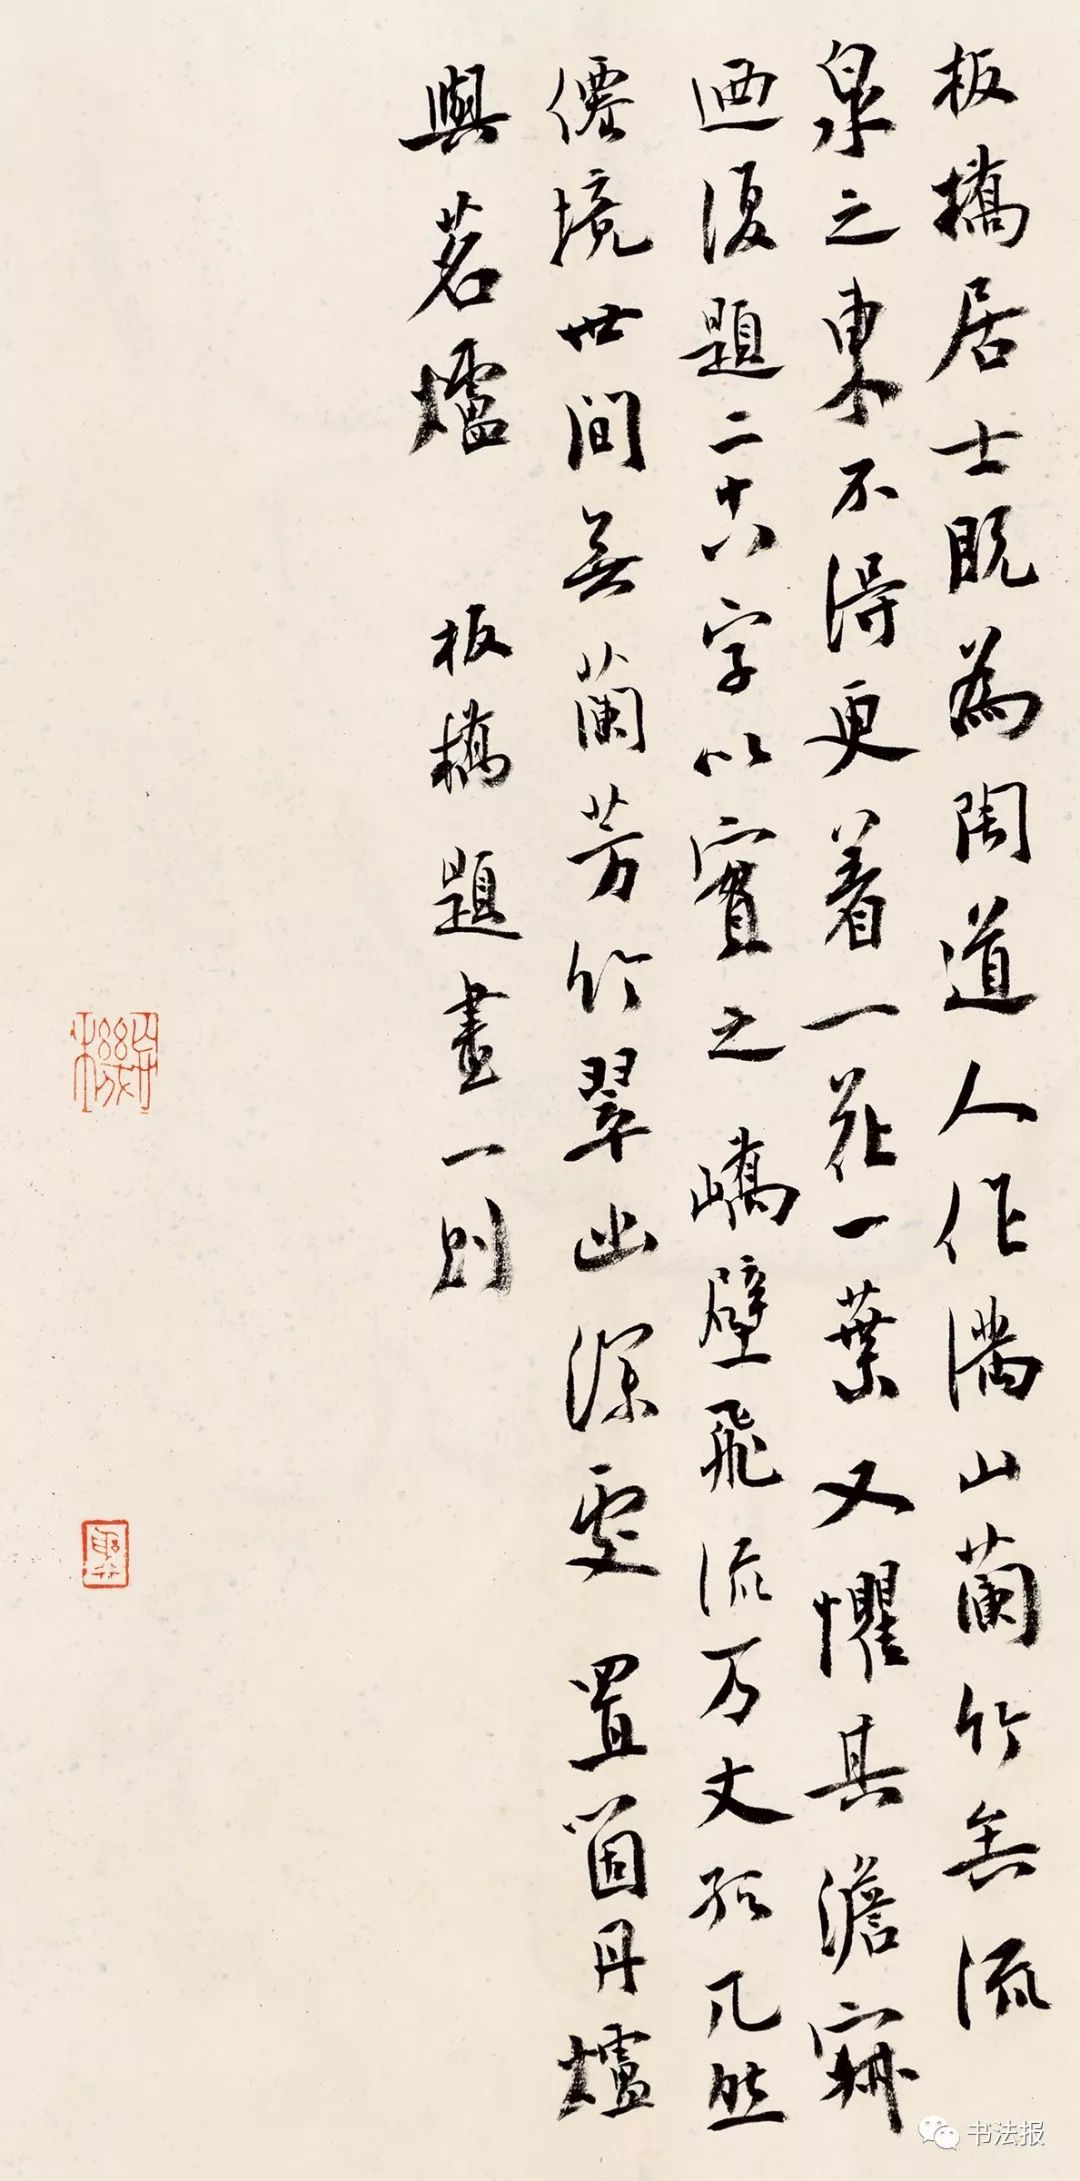 板橋居士既為陶道人作滿山蘭竹矣流
泉之東不得更着一花一葉又懼其澹寂
迺復題二十八字以實之嶠壁飛流万丈孤兀然
僊境世间無蘭芳竹翠幽深處置箇丹爐
與茗爐 板橋題畫一則
书法报